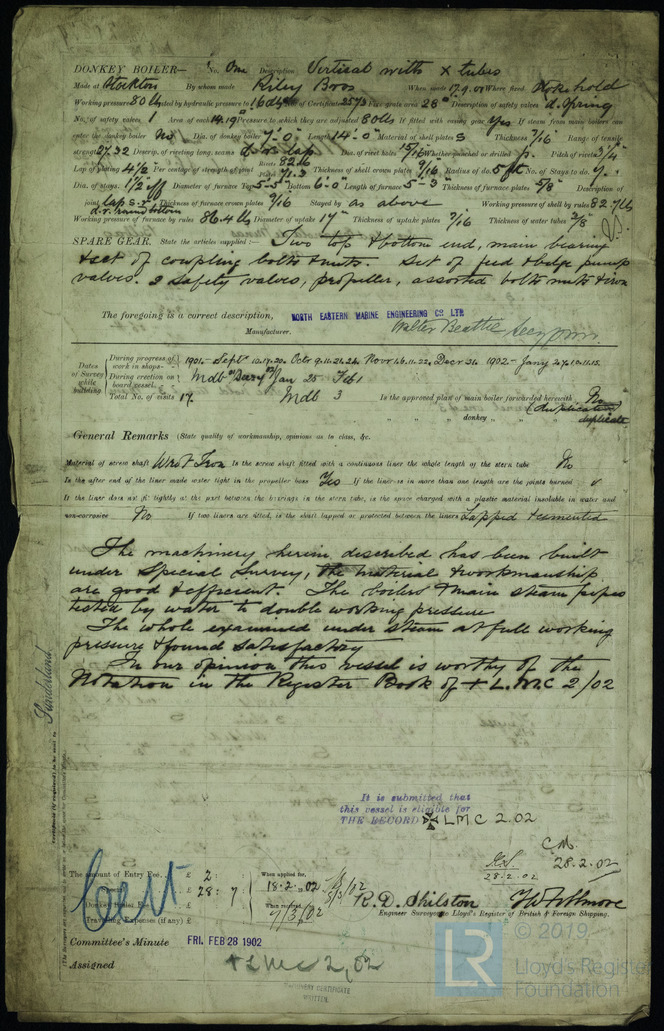 DONKEY BOILER— No. One Description Vertical with x tubes
Made at Stockton By whom made Riley Bros When made 17.9.01 Where fixed Stokehold
Working pressure 80 lbs tested by hydraulic pressure to 160 No. of Certificate 2573 Fire grate area 28 Description of safety valves d. Spring
No. of safety valves 1 Area of each 14.19 Pressure to which they are adjusted 80 lbs If fitted with easing gear Yes If steam from main boilers can
enter the donkey boiler No Dia. of donkey boiler 7'-0" Length 14'-0" Material of shell plates S Thickness 7/16 Range of tensile
strength 27.32 Descrip. of riveting long. seams lap Dia. of rivet holes 15/16 Whether punched or drilled Pitch of rivets 3 1/4
Lap of plating 4 1/2 Per centage of strength of joint Rivets 82.6 Plates 71.3 Thickness of shell crown plates 9/16 Radius of do. No. of Stays to do. 7
Dia. of stays 1 1/2 eff Diameter of furnace Top 5-5 Bottom 6-0 Length of furnace 5-3 Thickness of furnace plates 5/8 Description of
joint lap Thickness of furnace crown plates 9/16 Stayed by as above Working pressure of shell by rules 82.7 lbs
Working pressure of furnace by rules 86.4 lbs Diameter of uptake 17" Thickness of uptake plates 7/16 Thickness of water tubes 3/8
SPARE GEAR. State the articles supplied:— Two top & bottom end, main bearing
& set of coupling bolts & nuts. Set of feed & bilge pump
valves. 2 safety valves, propeller, assorted bolts nuts & iron
The foregoing is a correct description,
NORTH EASTERN MARINE ENGINEERING CO LTD
Manufacturer. Walter Beattie
Dates of Survey while building
During progress of work in shops— 1901.- Sept 10.17.20. Octr 9.11.21.24. Novr 1.6.11.22. Decr 31. 1902 - Jany
During erection on board vessel— Mdb Jan 25 Feb 1
Total No. of visits 17. Mdb 3 Is the approved plan of main boiler forwarded herewith No
(duplicate)
" " " donkey " " " duplicate
General Remarks (State quality of workmanship, opinions as to class, &c.
Material of screw shaft Wrot Iron Is the screw shaft fitted with a continuous liner the whole length of the stern tube No
Is the after end of the liner made water tight in the propeller boss Yes If the liner is in more than one length are the joints burned
If the liner does not fit tightly at the part between the bearings in the stern tube, is the space charged with a plastic material insoluble in water and
non-corrosive No If two liners are fitted, is the shaft lapped or protected between the liners Lapped & cemented
The machinery herein described has been built
under Special Survey, the material & workmanship
are good & efficient. The boilers & main steam pipes
tested by water to double working pressure
The whole examined under steam at full working
pressure & found satisfactory
In our opinion this vessel is worthy of the
Notation in the Register Book of + L.M.C 2/02
Sunderland
It is submitted that
this vessel is eligible for
THE RECORD + LMC 2.02
C.M.
28.2.02
28.2.02
The amount of Entry Fee. £ 2 : When applied for,
£ 28 : 7 18.2.02
Donkey Boiler Fee £ When received,
Travelling Expenses (if any) £ 7/3/02
Cert
R.D. Shilston
Engineer Surveyor to Lloyd's Register of British & Foreign Shipping.
Committee's Minute FRI. FEB 28 1902
Assigned + LMC 2,02
MACHINERY CERTIFICATE
WRITTEN.
LR
© 2019
Lloyd's Register
Foundation